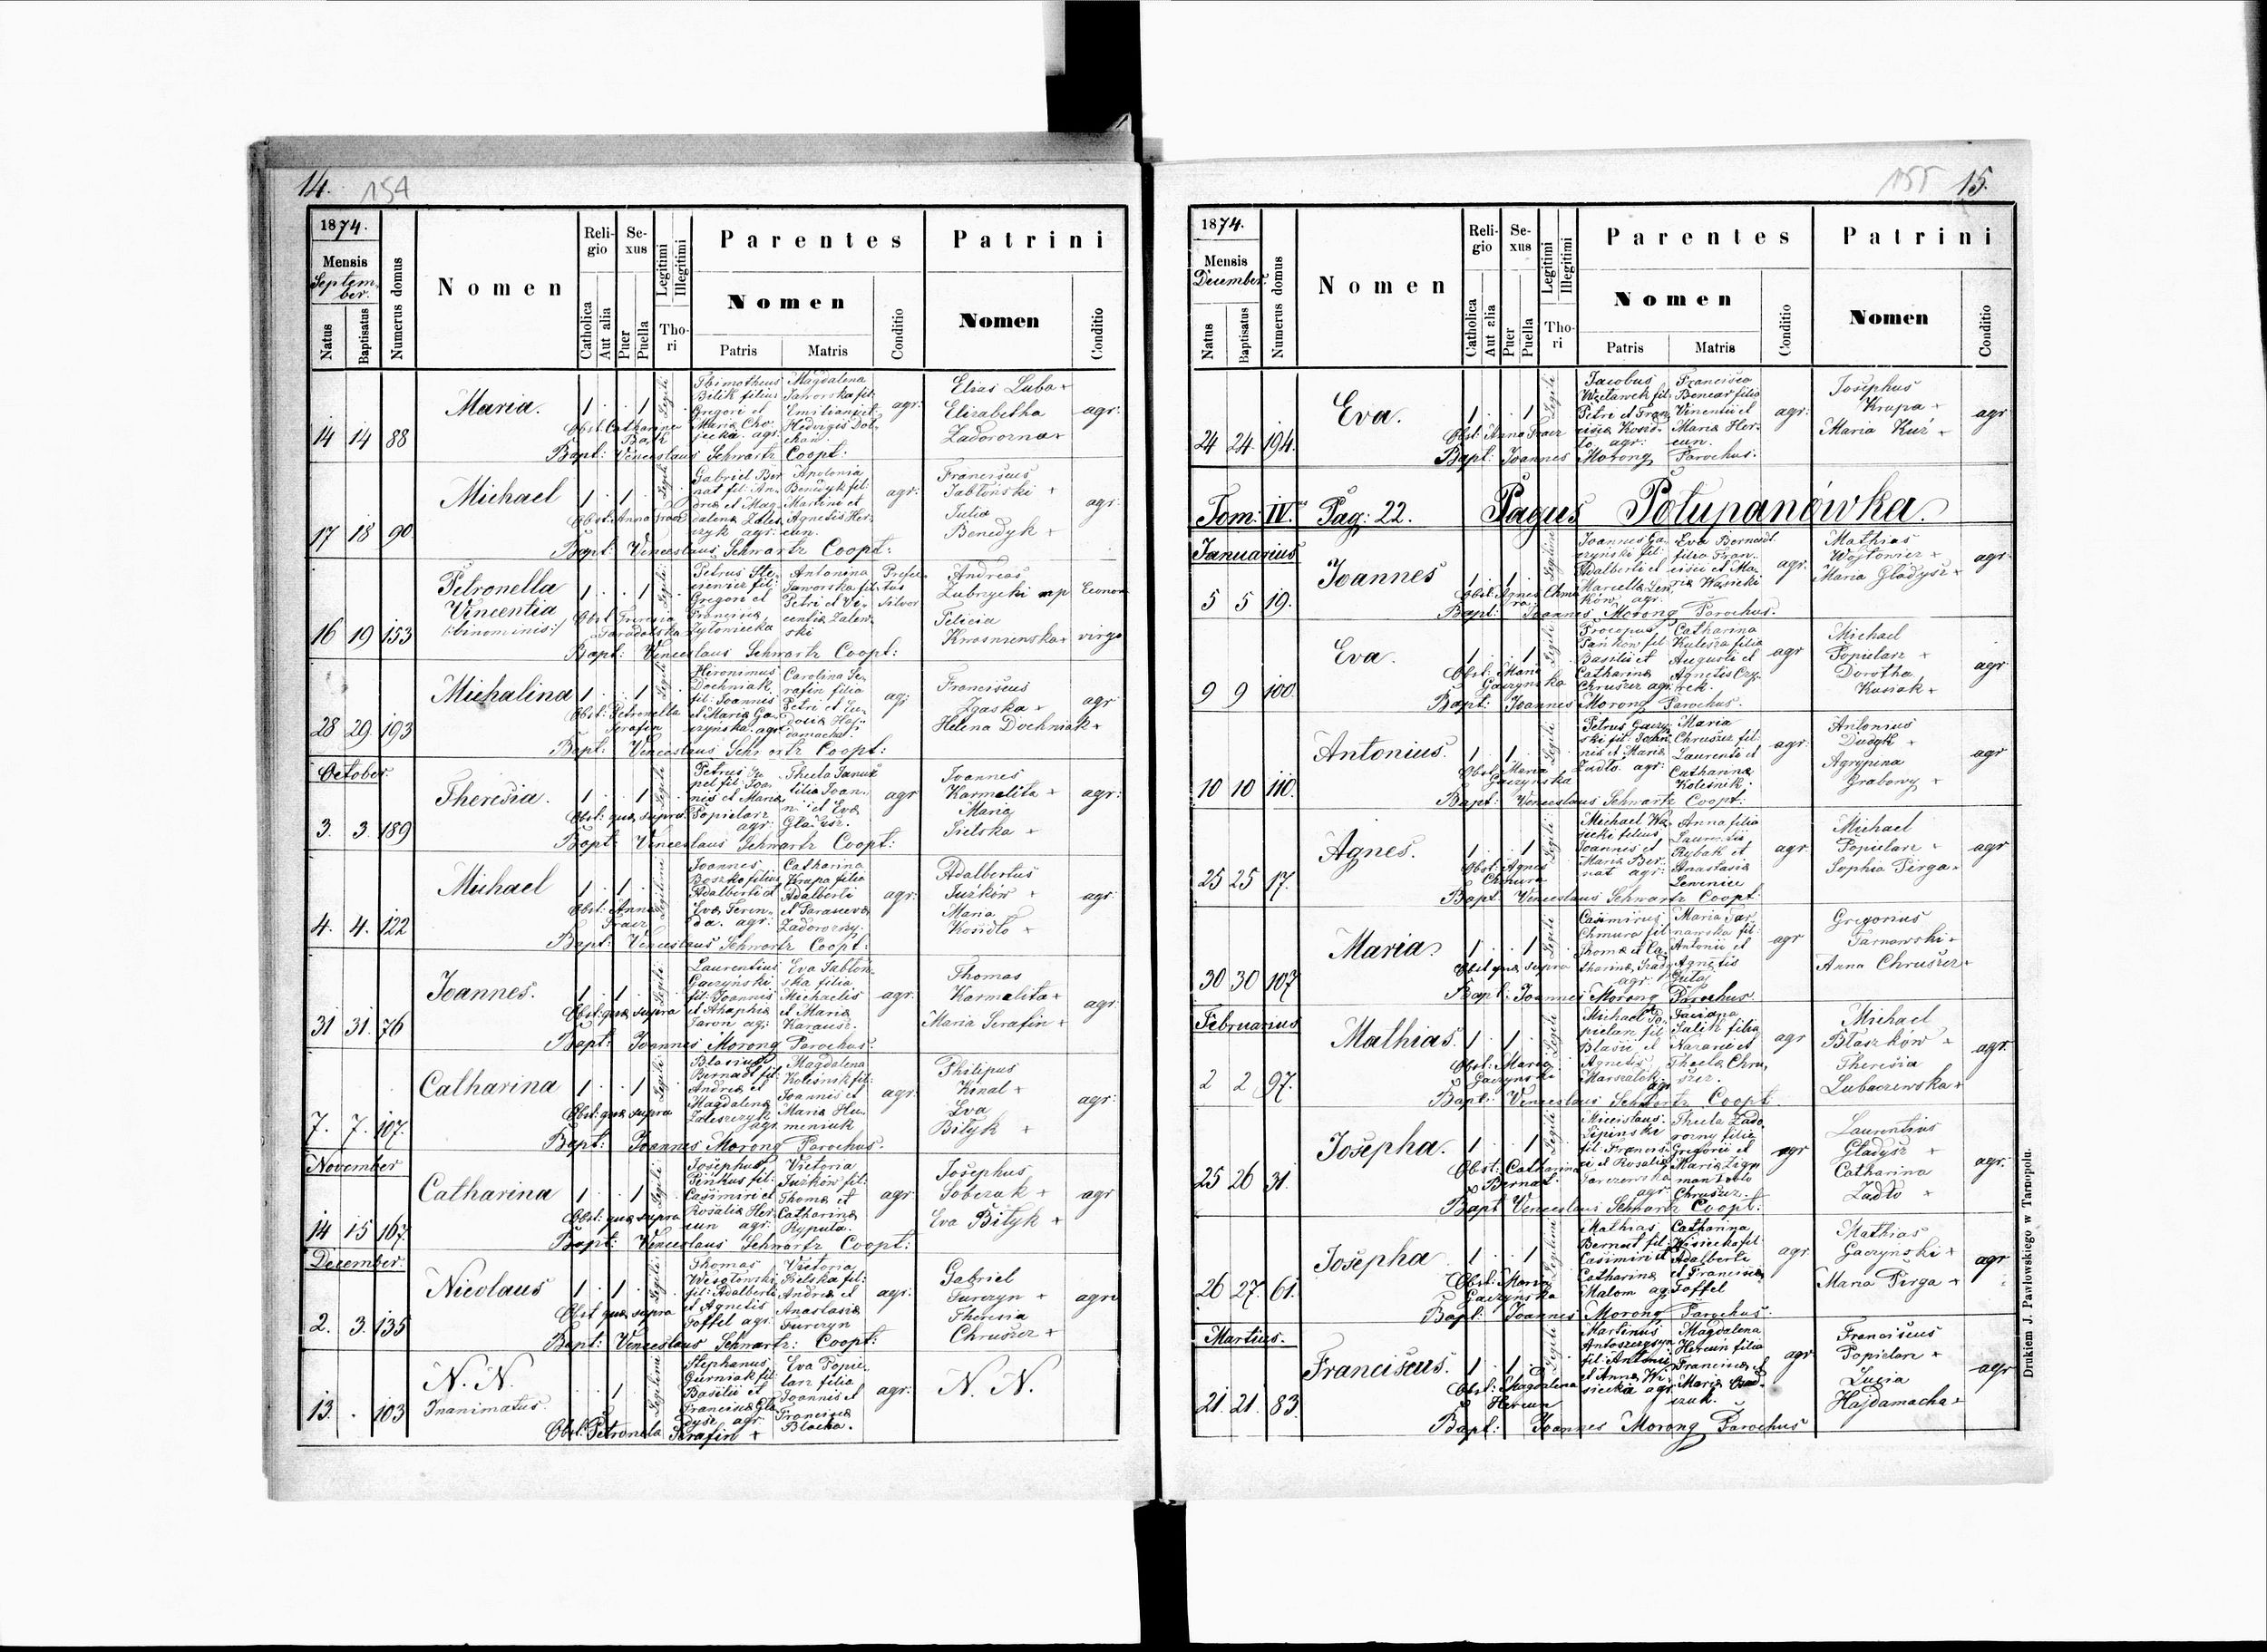 14. 154
1874.
Mensis
Septem-
ber.
Natus
Baptisatus
Numerus domus
Nomen
Reli-
gio
Catholica
Aut alia
Se-
xus
Puer
Puella
Legitimi
Illegitimi
Tho-
ri
Parentes
Nomen
Patris
Matris
Conditio
Patrini
Nomen
Conditio
14 14 88
Maria.
1 1
Thimotheus
Bilik filius
Gregori et
Maria Cho-
jecka. agr:
Magdalena
Jaworska fil:
Emiliani et
Hedvigis Dol-
chan.
agr:
Elias Luba +
Elizabetha
Zadorozna +
agr:
Obst Catharina
Bapt: Venceslaus Schwartz Coopt:
17 18 90
Michael
1 1
Gabriel Ber
nat fil: An-
dreæ et Mag-
dalenæ Zales
czyk agr:
Apolonia
Benedyk fil:
Martini et
Agnetis Her-
cun.
agr:
Franciscus
Jabłoński +
Julia
Benedyk +
agr:
Obst: Anna Fraer
Bapt: Venceslaus Schwartz Coopt:
16 19 153
Petronella
Vincentia
/:binominis:/
1 1
Petrus Ste-
Gregori et
Francisca
Antonina
Jaworska fil:
Petri et Vi-
centiæ Zalew-
ski
Prefec-
tus
Silvar
Andreas
Zubrzycki mp
Felicia
Krosnenska +
Econom
virgo
Bapt: Venceslaus Schwartz Coopt:
28 29 193
Michalina
1 1
Hieronimus
Dochniak
fil: Joannis
et Maria Ga-
czyńska. agr
Carolina Se-
rafin filia
Petri et Eu-
dosiæ Haj-
damacha.
agr:
Franciscus
Zgaska +
Helena Dochniak +
agr
Obst: Petronella
Serafin
Bapt: Venceslaus Schwartz Coopt:
October.
3. 3. 189
Theresia.
1 1
Petrus Ju-
pel fil: Joa-
nis et Maria
Popielarz
agr:
Thecla Janusz
filia Joan-
nis et Eva
Gładysz.
agr
Joannes
Karmelita +
Maria
Sielska +
agr:
Obst: quæ supra
Bapt: Venceslaus Schwartz Coopt:
4. 4. 122
Michael
1 1
Joannes
Boszko filius
Adalberti et
Eva Feren-
da. agr:
Catharina
Krupa filia
Adalberti
et Parascevæ
Zadorozny.
agr:
Adalbertus
Juzków +
Maria
Koszdło +
agr:
Obst: Anna
Fraer
Bapt: Venceslaus Schwartz Coopt:
31 31. 76
Joannes.
1 1
Laurentius
Gaczyński
fil: Joannis
et Ahaphia
Jaron ag:
Eva Jabłoń-
ska filia
Michaelis
et Maria
Karausz.
agr:
Thomas
Karmelita +
Maria Serafin +
agr:
Obst: quæ supra
Bapt: Joannes Morong Parochus:
7. 7. 107.
Catharina
1 1
Blasius
Bernadt fil:
Andreæ et
Magdalenæ
Zaleszczyk
agr:
Magdalena
Kolesnik fil:
Joannis et
Maria Hu-
meniuk
agr:
Philipus
Kinal +
Eva
Bityk +
agr:
Obst: quæ supra
Bapt: Joannes Morong Parochus.
November
14 15 167.
Catharina
1 1
Josephus
Pińkus fil:
Casimiri et
Rosalia Her-
cun agr:
Victoria
Juzków fil:
Thomæ et
Catharinæ
Ryputa.
agr:
Josephus
Sobczak +
Eva Bityk +
agr
Obst: quæ supra
Bapt: Venceslaus Schwartz Coopt:
December.
2. 3. 135
Nicolaus
1 1
Thomas
Wesołowski
fil: Adalberti
et Agnetis
Toffel agr:
Victoria
Bielska fil:
Andreæ et
Anastasiæ
Furczyn
agr:
Gabriel
Furczyn +
Theresia
Chruszcz +
agri
Obst quæ supra
Bapt: Venceslaus Schwartz: Coopt:
13. . 103
N. N.
Inanimatus.
1
Stephanus
Gurniak fil:
Basilii et
Francisca Gła-
dysz agr:
Eva Popie-
larz filia
Joannis et
Francisca
Błocka.
agr:
N. N.
Obst: Petronela Serafin +
155 15.
1874.
Mensis
December.
Natus
Baptisatus
Numerus domus
Nomen
Reli-
gio
Catholica
Aut alia
Se-
xus
Puer
Puella
Legitimi
Illegitimi
Tho-
ri
Parentes
Nomen
Patris
Matris
Conditio
Patrini
Nomen
Conditio
24 24. 194.
Eva.
1 1
Jacobus
Węcławek fil:
Petri et Fran-
cisca Koszd-
ło agr:
Francisca
Bencar filia
Vincentii et
Maria Her-
cun.
agr:
Josephus
Krupa +
Maria Kuż +
agr
Obst: Anna Fraer
Bapt: Joannes Morong Parochus.
Tom: IV. Pag: 22. Pagus Połupanówka.
Januarius
5 5 19.
Joannes
1 1
Joannes Ga-
czyński fil:
Adalberti et
Marcella Len-
ków. agr.
Eva Bernadt
filia Fran-
cisci et Ma-
ria Wasicki
agr:
Mathias
Wojtowicz +
Maria Gładysz +
agr:
Obst: Agnes Chmu
ra
Bapt: Joannes Morong Parochus.
9 9 100.
Eva.
1 1
Procopus
Pańkow fil
Basilii et
Catharina
Chruszcz agr.
Catharina
Kulesza filia
Augusti et
Agnetis Czy-
rek.
agr
Michael
Popielarz +
Dorothea
Kusiak +
agr
Obst: Maria
Gaczyńska
Bapt: Joannes Morong Parochus.
10 10 110.
Antonius.
1 1
Petrus Gaczy-
ski fil: Joan-
nis et Maria
Zadło. agr:
Maria
Chruszcz fil:
Laurenti et
Catharina
Kolesnik.
agr:
Antonius
Dudyk +
Agrypina
Grabowy +
agr
Obst: Maria
Gaczyńska
Bapt: Venceslaus Schwartz Coopt:
25 25 17.
Agnes.
1 1
Michael Wa-
sicki filius
Joannis et
Maria Ber-
nat agr:
Anna filia
Laurentii
Rybak et
Anastasia
Lewenice
agr
Michael
Popielarz +
Sophia Pirga +
agr
Obst: Agnes
Chmura
Bapt: Venceslaus Schwartz Coopt:
30 30 107
Maria
1 1
Casimirus
Chmura fil
Thomæ et Ca-
tharinæ
agr:
Maria Tar-
nawska fil
Antonii et
Agnetis
Gutaj
agr
Gregorius
Tarnowski +
Anna Chruszcz +
Obst quæ supra
Bapt: Joannes Morong Parochus
Februarius
2 2 97.
Mathias.
1 1
Michael Po-
pielarz fil
Blasii et
Agnetis
Marszałek
agr
Taciana
Salik filia
Nazarii et
Thecla Chru-
szcz.
agr
Michael
Błaszków +
Theresia
Lubaczewska +
agr:
Obst: Maria
Gaczyński
Bapt: Venceslaus Schwartz Coopt.
25 26 31.
Josepha.
1 1
Miecislaus
Lipinski
fil: Francis-
ci et Rosalia
Tarczewska
agr:
Thecla Zado-
rozny filia
Gregorii et
Maria
Chruszcz.
agr
Laurentius
Gładysz +
Catharina
Zadło +
agr:
Obst: Catharina
Bernat.
Bapt Venceslaus Schwartz Coopt:
26 27. 61.
Josepha
1 1
Mathias
Bernat fil:
Casimiri et
Catharina
Malom ag.
Catharina
Wisiecka fil:
Adalberti
et Francisca
Toffel
agr
Mathias
Gaczynski +
Maria Pirga +
agr
Obst: Maria
Gaczyńska
Bapt: Joannes Morong Parochus.
Martius.
21. 21. 83.
Franciscus.
1 1
Martinus
Antoszczyszyn
fil: Antonii
et Anna Wi-
siecka agr
Magdalena
Hercun filia
Francisca et
Maria
czuk.
agr
Franciscus
Popielarz +
Lucia
Hajdamacha +
agr
Obst: Magdalena
Hercun
Bapt: Joannes Morong Parochus
Drukiem J. Pawłowskiego w Tarnopolu.